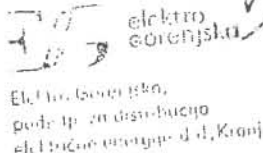 elektro
gorenjska
Elektro Gorenjska,
podjetje za distribucijo
električne energije d.d., Kranj